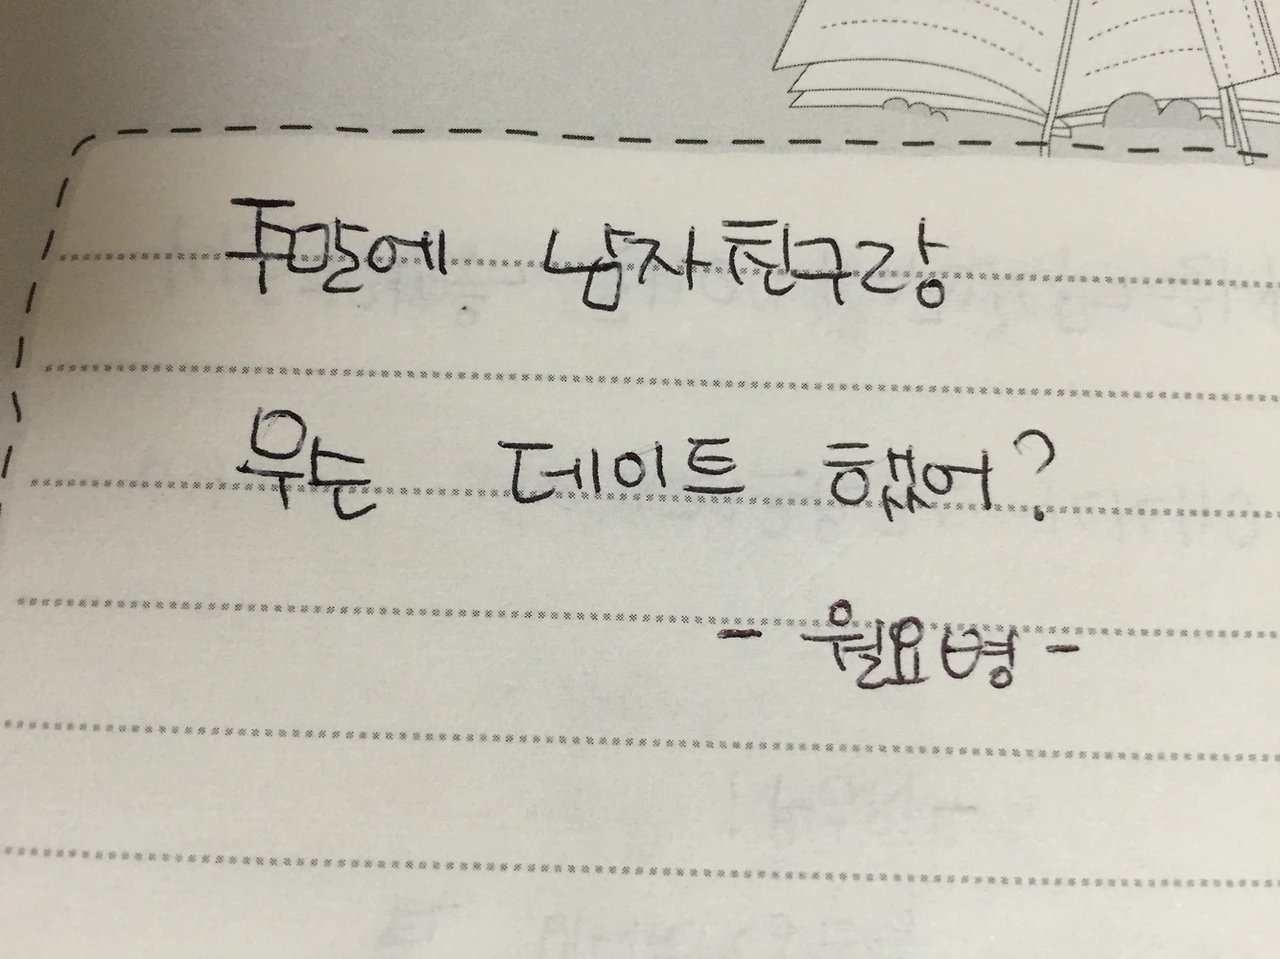 주말에 남자친구랑
무슨 데이트 했어?
- 월요병 -